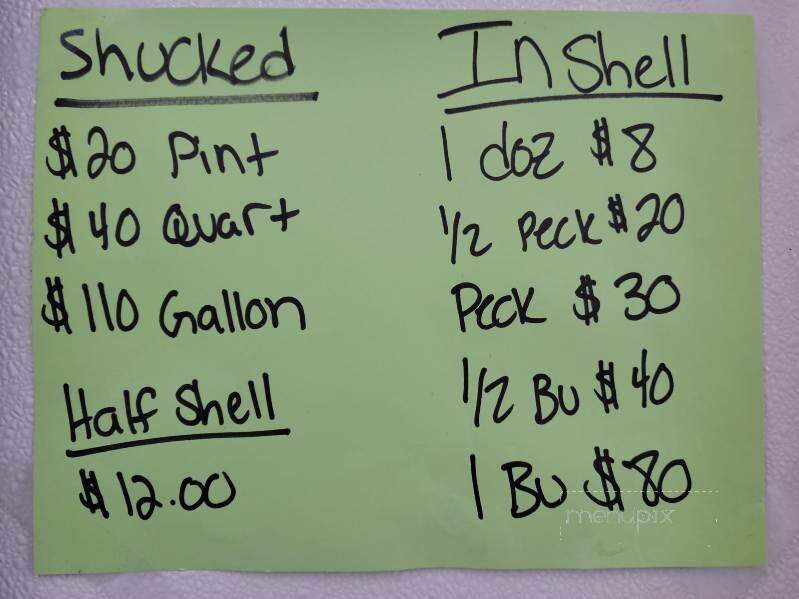 Shucked
$20 Pint
$40 Quart
$110 Gallon
Half Shell
$12.00
In Shell
1 doz $8
1/2 Peck $20
Peck $30
1/2 Bu $40
1 Bu $80
menupix